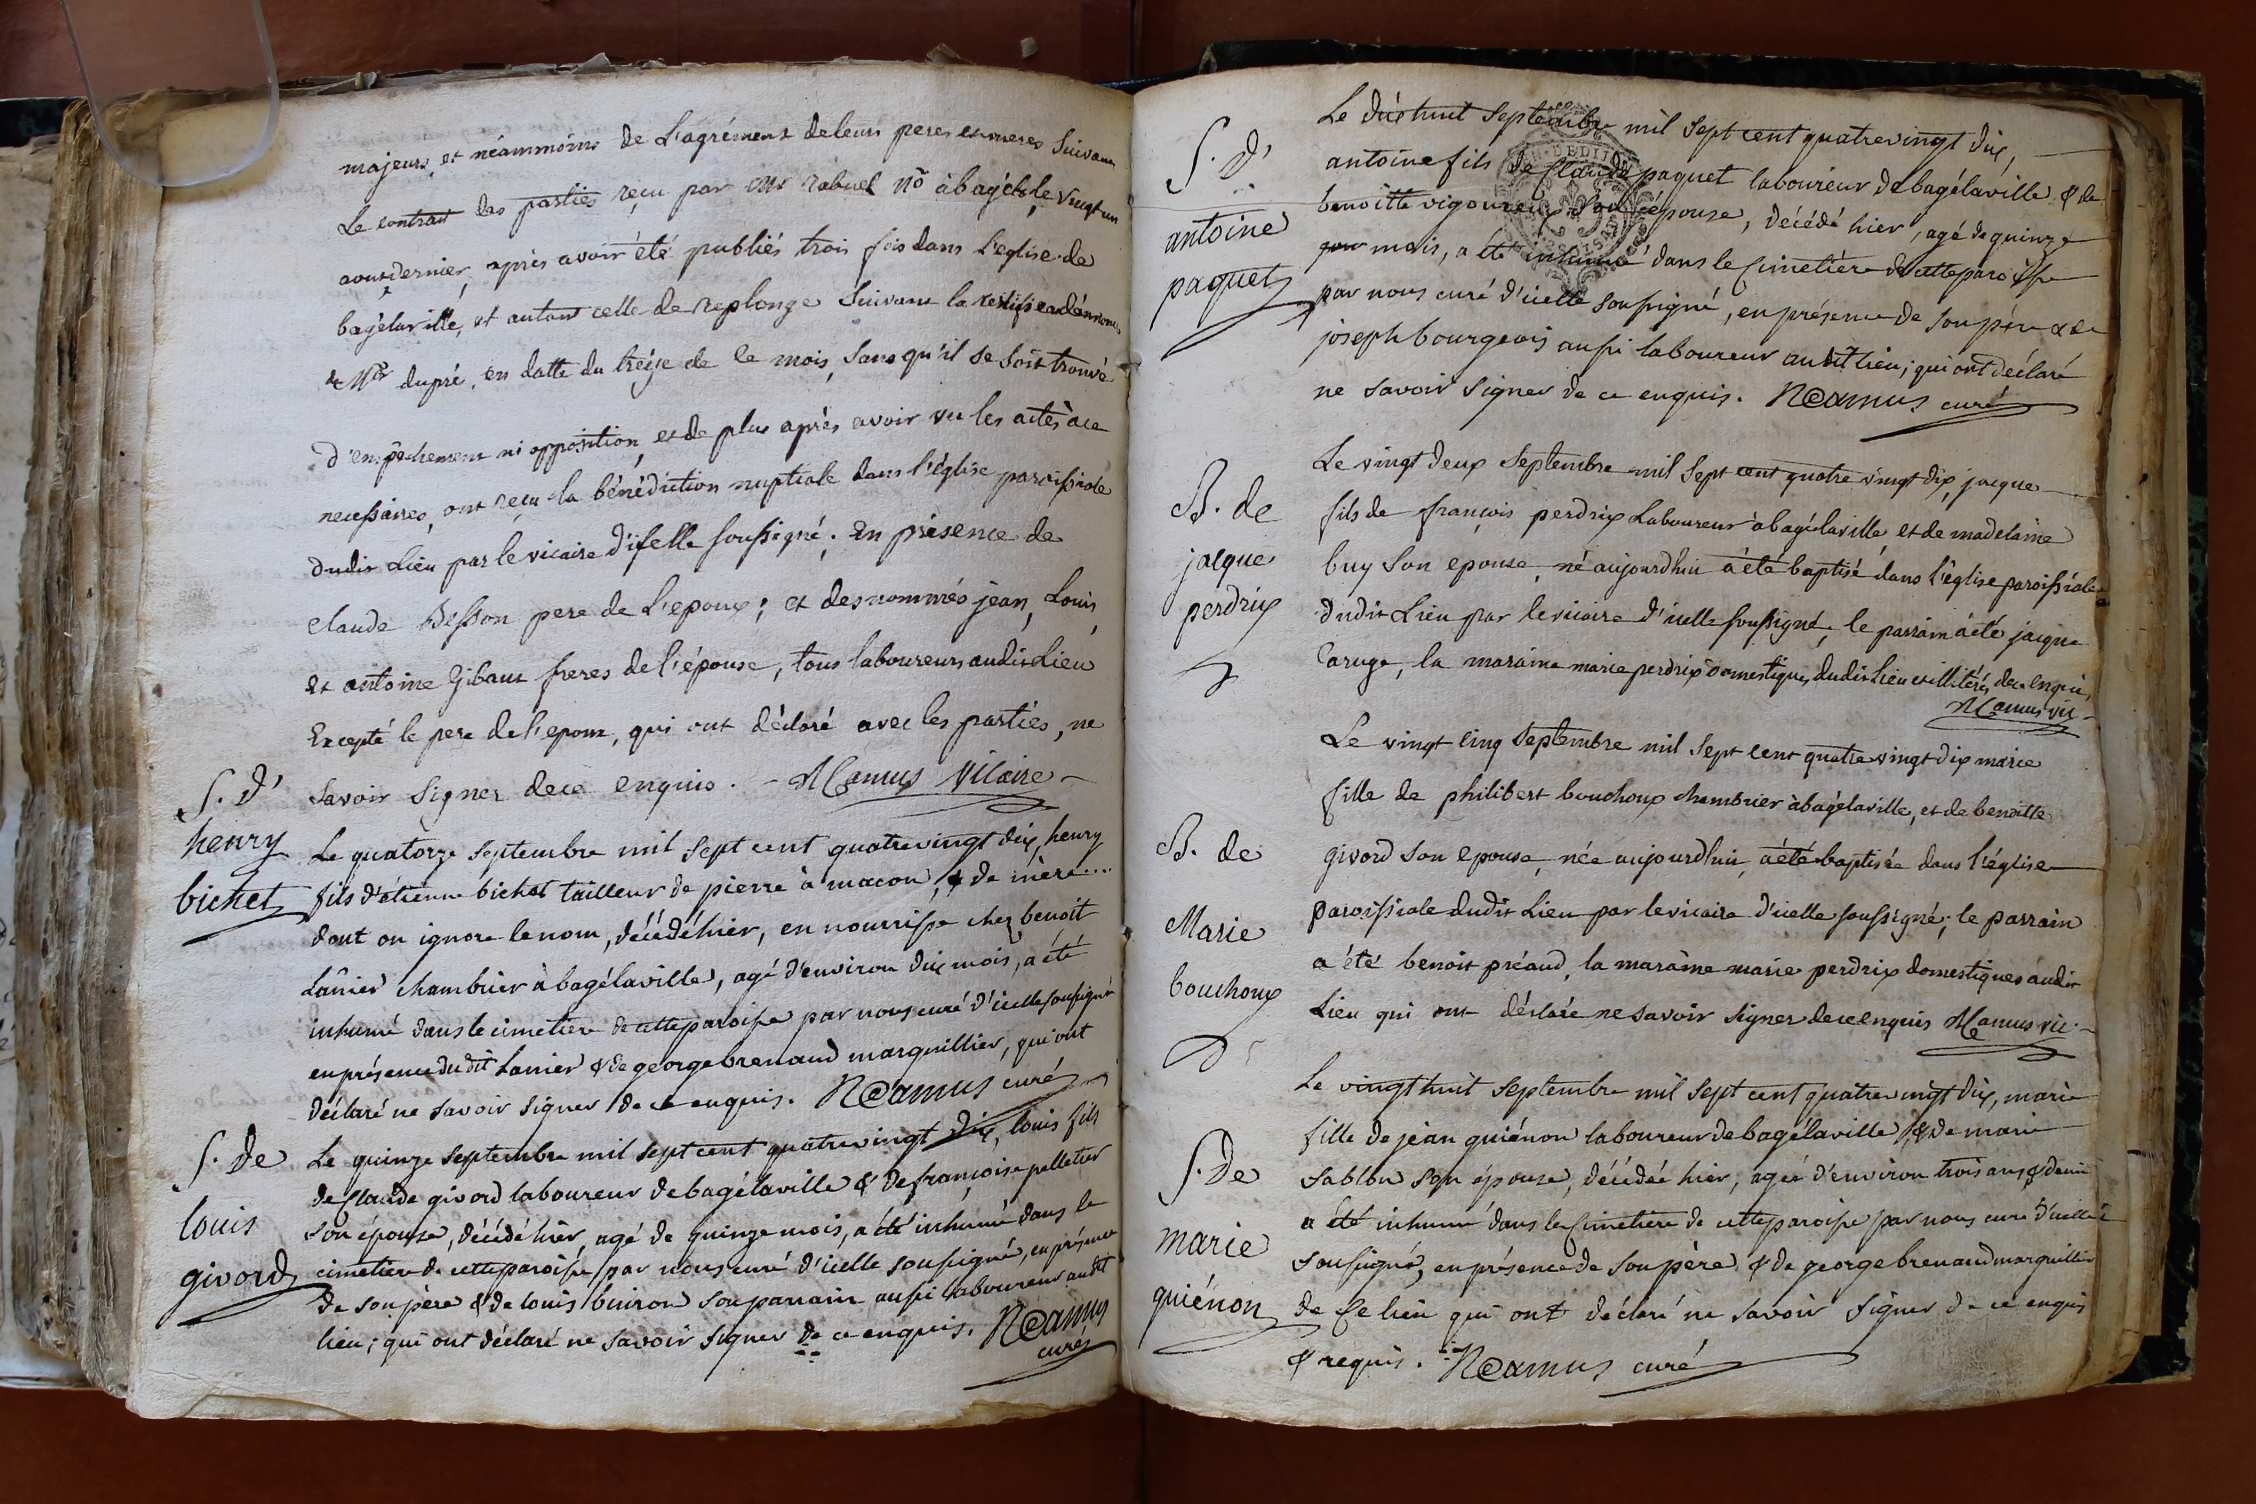 majeurs, et néammoins de L'agrément de leurs peres et meres Suivant
Le contrat des parties reçu par Mr rabuel no à bagé le vingt un
aoust dernier, après avoir été publiés trois fois dans l'eglise de
bagélaville, et autant celle de replonge Suivant la
de Mr dupré, en datte du treize de ce mois, sans qu'il se soit trouvé
d'empêchement ni opposition, et de plus après avoir vu les actes à ce
necessaires, ont reçu la bénédiction nuptiale dans l'église paroissiale
dudit Lieu par le vicaire d'icelle soussigné; En présence de
claude Besson pere de L'epoux; et des nommés jean, Louis,
et antoine Gibaut freres de l'épouse, tous laboureurs audit Lieu
Excepté le pere de l'epoux, qui ont déclaré avec les parties, ne
savoir signer de ce enquis. - NCamus Vicaire -
S. d'
henry
bichet
Le quatorze septembre mil sept cent quatrevingt dix, henry
fils d'étienne bichet tailleur de pierre à macon, & de mère....
dont on ignore le nom, décédé hier, en nourrisse chez benoit
Lânier chambrier à bagélaville, agé d'environ dix mois, a été
inhumé dans le cimetiere de cette paroisse par nous curé d'icelle soussigné
en présence dudit Lanier & de george brenaud marguillier, qui ont
déclaré ne savoir signer de ce enquis. NCamus curé
S. de
louis
givord
Le quinze septembre mil sept cent quatrevingt dix, louis fils
de Claude givord laboureur de bagélaville & de françoise pelletier
son épouse, décédé hier, agé de quinze mois, a été inhumé dans le
cimetiere de cette paroisse par nous curé d'icelle soussigné, en présence
de son père & de louis buiron son parrain aussi laboureur audit
lieu; qui ont déclaré ne savoir signer de ce enquis. NCamus
curé
S. d'
antoine
paquet
Le dixhuit septembre mil sept cent quatrevingt dix,
antoine fils de Claude paquet laboureur de bagélaville & de
benoitte vigoureux son épouse, décédé hier, agé de quinze
mois, a été inhumé dans le Cimetière de cette paroisse
par nous curé d'icelle soussigné, en présence de son père & de
joseph bourgeois aussi laboureur audit lieu; qui ont déclaré
ne savoir signer de ce enquis. NCamus curé
B. de
jacque
perdrix
Le vingt deux septembre mil sept cent quatre vingt dix, jacque
fils de françois perdrix Laboureur à bagélaville et de madelaine
buy son epouse, né aujourdhui a été baptisé dans l'église paroissiale
dudit Lieu par le vicaire d'icelle soussigné, le parrain a été jacque
, la maraine marie perdrix Domestiques dudit Lieu et illitérés de ce enquis,
NCamus vic -
B. de
Marie
bouchoux
Le vingt cinq septembre mil sept cent quatre vingt dix marie
fille de philibert bouchoux chambrier à bagélaville, et de benoitte
givord son epouse, née aujourdhui, a été baptisée dans l'église
paroissiale dudit Lieu par le vicaire d'icelle soussigné; le parrain
a été benoit préaud, la maraine marie perdrix domestiques audit
Lieu qui ont déclaré ne savoir signer de ce enquis NCamus vic -
S. de
marie
guiénon
Le vingthuit septembre mil sept cent quatrevingt dix, marie
fille de jean guiénon laboureur de bagélaville, & de marie
Sablon son épouse, décédée hier, agée d'environ trois ans & demi
a été inhumé dans le Cimetiere de cette paroisse par nous curé d'icelle
soussigné, en présence de son père & de george brenaud marguillier
de ce lieu qui ont déclaré ne savoir signer de ce enquis
& requis. NCamus curé